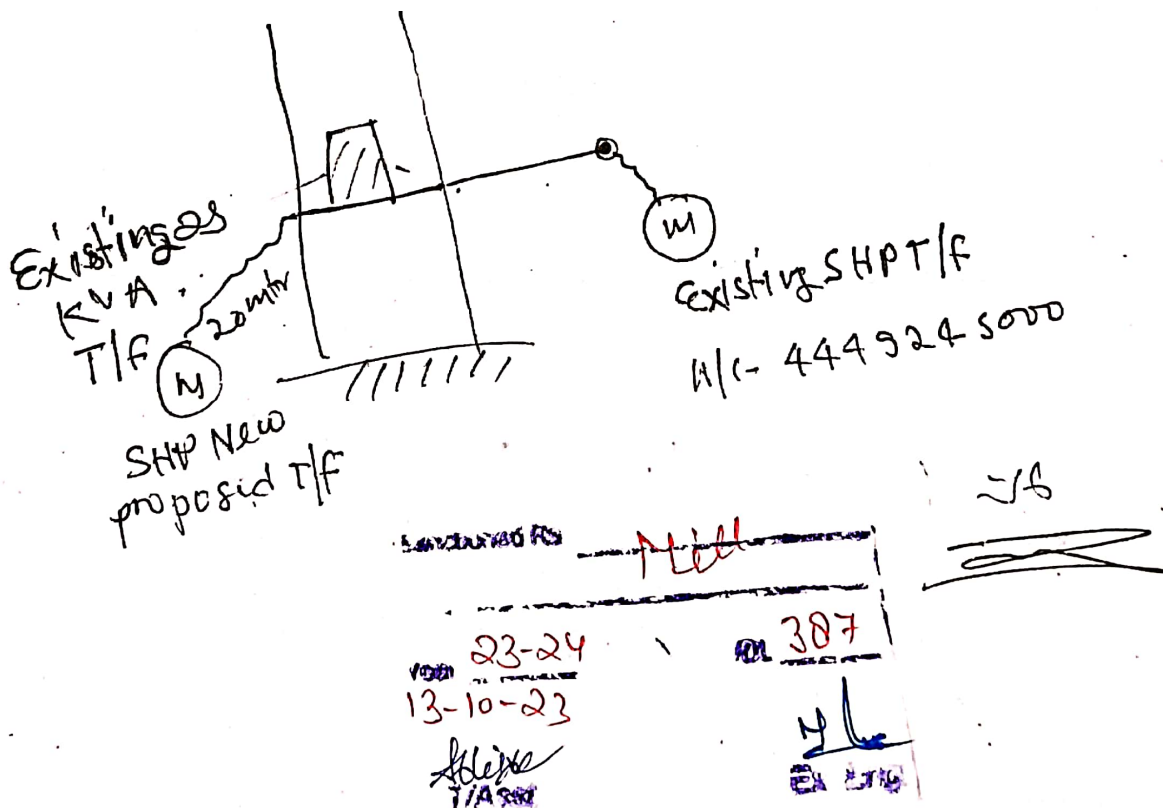 Existing 25
KVA.
T/F
20 mtr
M
SHP New
proposed T/F
M
Existing SHP T/F
A/C- 4449245000
Sanctioned Rs
Nill
Year 23-24
387
13-10-23